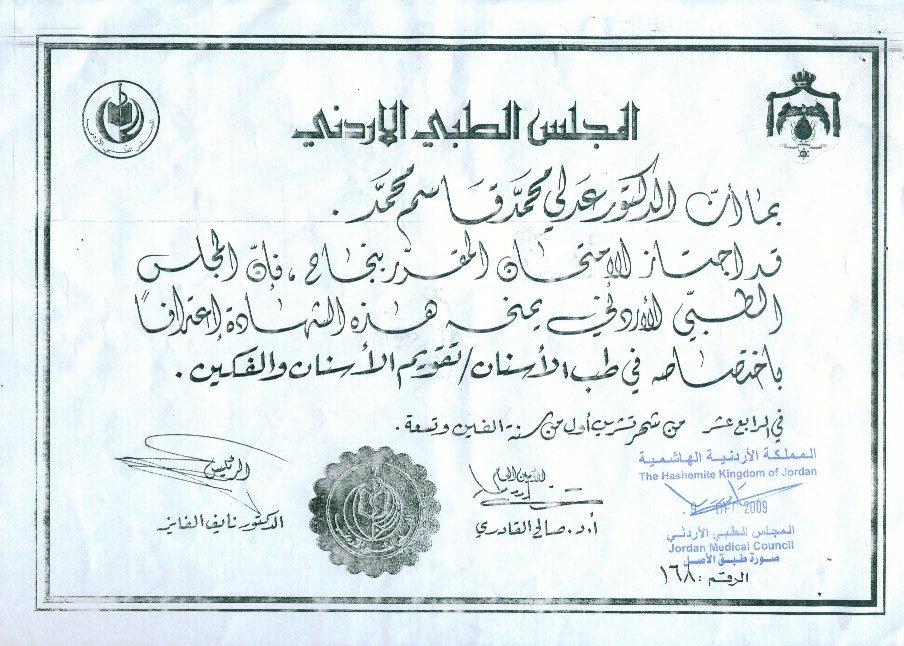 المجلس الطبي الاردني
بما أن الدكتور عدلي محمد قاسم محمد .
قد اجتاز الامتحان المقرر بنجاح ، فإن المجلس
الطبي الأردني يمنحه هذه الشهادة إعترافاً
باختصاصه في طب الأسنان / تقويم الأسنان والفكين .
في الرابع عشر من شهر تشرين أول من سنة الفين وتسعة .
المملكة الأردنية الهاشمية
The Hashemite Kingdom of Jordan
2009
المجلس الطبي الأردني
Jordan Medical Council
صورة طبق الأصل
الرقم : ١٦٨
الأمين العام
أ.د. صالح القادري
الرئيس
الدكتور نايف الفايز